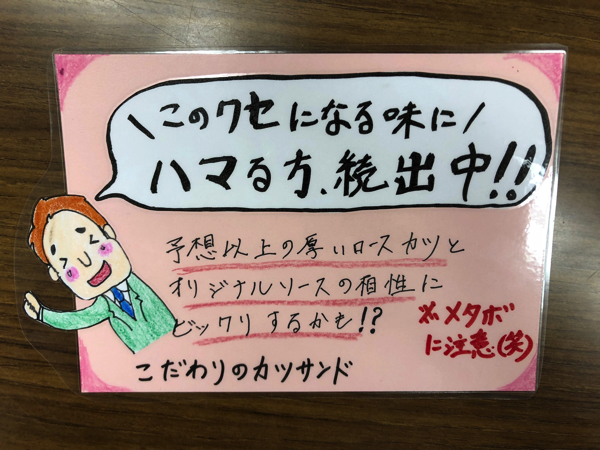 \このクセになる味に/
ハマる方、続出中!!
予想以上の厚いロースカツと
オリジナルソースの相性に
ビックリするかも!?
※メタボ
に注意(笑)
こだわりのカツサンド